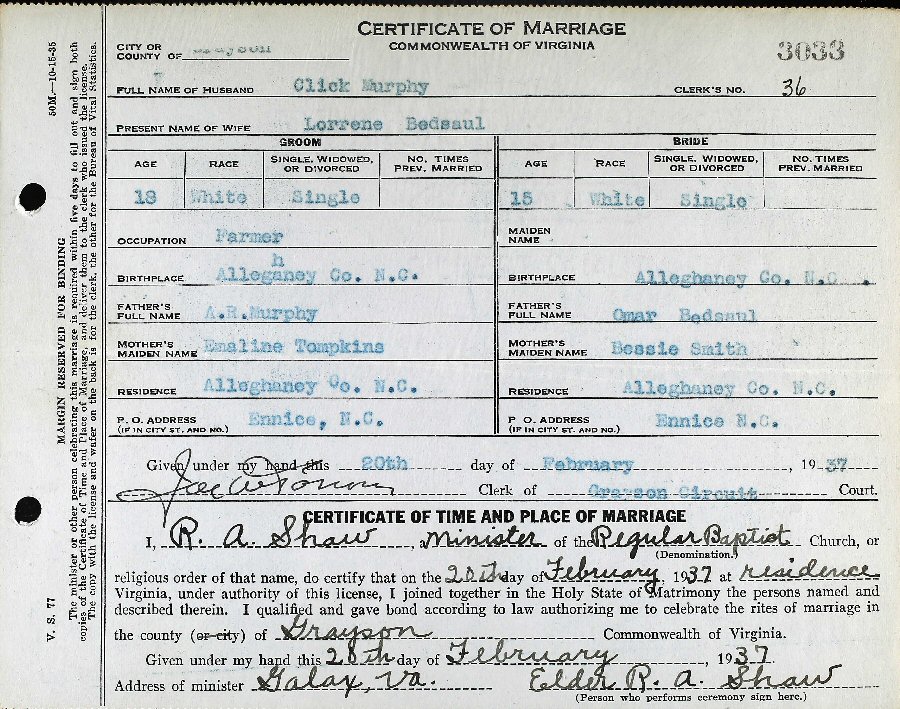 CERTIFICATE OF MARRIAGE
COMMONWEALTH OF VIRGINIA
CITY OR
COUNTY OF Grayson
3033
FULL NAME OF HUSBAND Click Murphy CLERK'S NO. 36
PRESENT NAME OF WIFE Lorrene Bedsaul
GROOM BRIDE
AGE RACE SINGLE, WIDOWED, OR DIVORCED NO. TIMES PREV. MARRIED AGE RACE SINGLE, WIDOWED, OR DIVORCED NO. TIMES PREV. MARRIED
18 White Single 15 White Single
OCCUPATION Farmer MAIDEN NAME
h
BIRTHPLACE Alleganey Co. N.C. BIRTHPLACE Alleghaney Co. N.C.
FATHER'S FULL NAME A.R.Murphy FATHER'S FULL NAME Omar Bedsaul
MOTHER'S MAIDEN NAME Emaline Tompkins MOTHER'S MAIDEN NAME Bessie Smith
RESIDENCE Alleghaney Co. N.C. RESIDENCE Alleghaney Co. N.C.
P. O. ADDRESS (IF IN CITY ST. AND NO.) Ennice, N.C. P. O. ADDRESS (IF IN CITY ST. AND NO.) Ennice N.C.
Given under my hand this 20th day of February, 1937
Clerk of Grayson Circuit Court.
CERTIFICATE OF TIME AND PLACE OF MARRIAGE
I, R. A. Shaw, Minister of the Regular Baptist Church, or
(Denomination.)
religious order of that name, do certify that on the 20th day of February, 1937 at residence
Virginia, under authority of this license, I joined together in the Holy State of Matrimony the persons named and
described therein. I qualified and gave bond according to law authorizing me to celebrate the rites of marriage in
the county (or city) of Grayson Commonwealth of Virginia.
Given under my hand this 20th day of February, 1937
Address of minister Galax, Va. Elder R. A. Shaw
(Person who performs ceremony sign here.)
V. S. 77 MARGIN RESERVED FOR BINDING 50M—10-15-35
The minister or other person celebrating this marriage is required within five days to fill out and sign both
copies of the Certificate of Time and Place of Marriage, and deliver them to the clerk who issued the license.
The copy with the license and wafer on the back is for the clerk, the other for the Bureau of Vital Statistics.